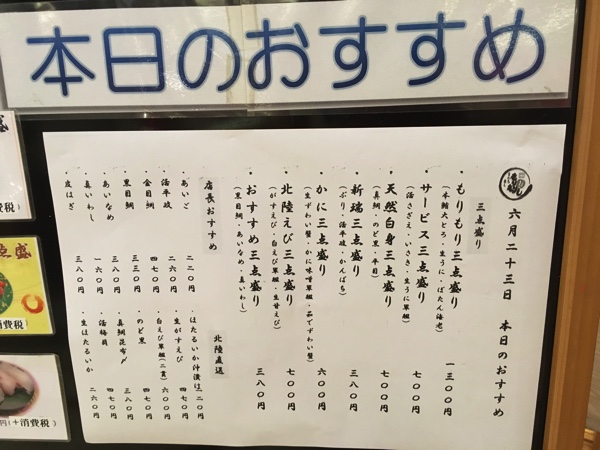 本日のおすすめ
六月二十三日　本日のおすすめ
三点盛り
・もりもり三点盛り　一三〇〇円
(本鮪大とろ・生うに・ぼたん海老)
・サービス三点盛り　七〇〇円
(活さざえ・いさき・生うに軍艦)
・天然白身三点盛り　七〇〇円
(真鯛・のど黒・平目)
・新瑞三点盛り　三八〇円
(ぶり・活平政・かんぱち)
・かに三点盛り　六〇〇円
(生ずわい蟹・かに味噌軍艦・茹でずわい蟹)
・北陸えび三点盛り　七〇〇円
(がすえび・白えび軍艦・生甘えび)
・おすすめ三点盛り　三八〇円
(黒目鯛・あいなめ・真いわし)
店長おすすめ
・あいご　二二〇円
・活平政　二六〇円
・金目鯛　四七〇円
・黒目鯛　三三〇円
・あいなめ　三八〇円
・真いわし　一六〇円
・皮はぎ　三八〇円
北陸直送
・ほたるいか汁漬け　二二〇円
・生がすえび　四七〇円
・白えび軍艦(二貫)　六〇〇円
・のど黒　四七〇円
・真鯛昆布〆　三八〇円
・活梅貝　四七〇円
・生ほたるいか　二六〇円
盛
費税)
点盛
消費税)
円(+消費税)